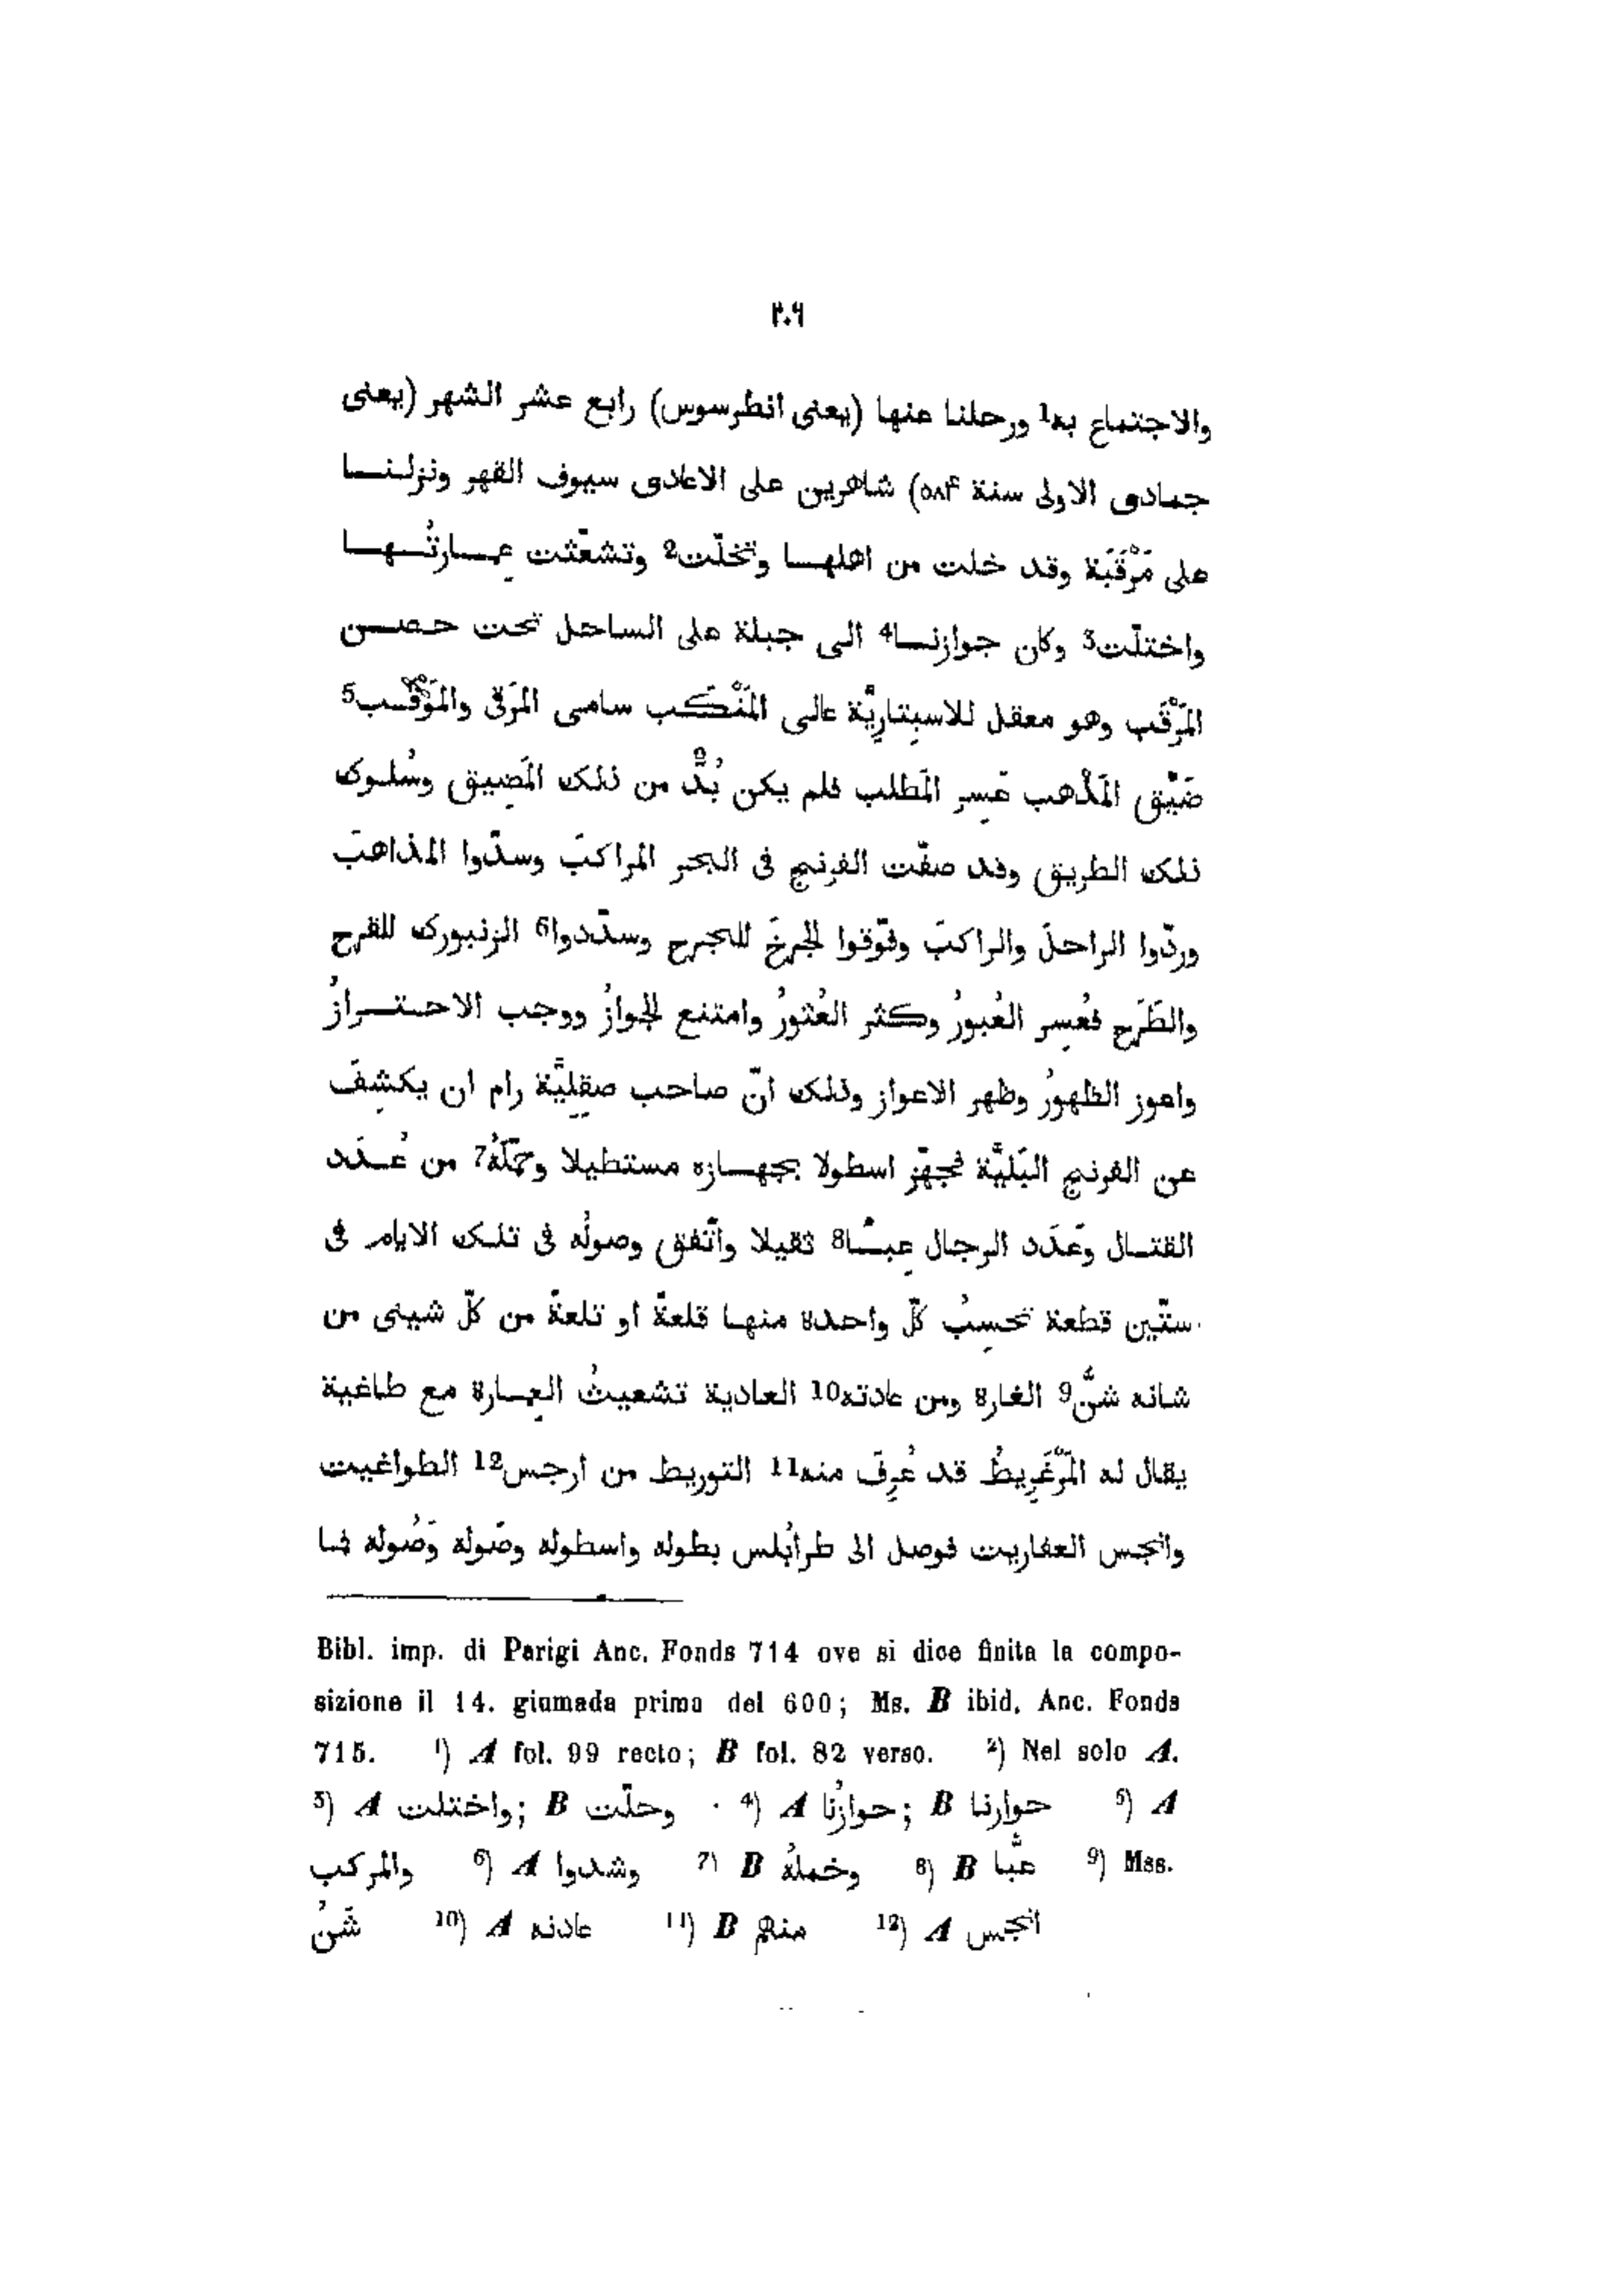 ٢٠٦
والاجتماع به1 ورحلنا عنها (يعنى انطرسوس) رابع عشر الشهر (يعنى
جمادى الاولى سنة ٥٨۴) شاهرين على الاعادى سيوف القهر ونزلنـــا
على مَرْقَبَة وقد خلت من اهلهـــا وتخلّت2 وتشعّثت عِمــارتُــهــا
واختلّت3 وكان جوازنــا4 الى جبلة على الساحل تحت حصــن
المَرْقَب وهو معقل للاسبِتارِيَّة عالى المَنْكَب سامى المَرْقى والمَوْقَــب5
ضَيّق المَذْهب عَسِر المَطلب فلم يكن بُدٌّ من ذلك المَضِيق وسُلــوك
ذلك الطريق وقد صفّت الفرنج فى البحر المراكبَ وسدّوا المذاهبَ
وردّوا الراجلَ والراكبَ وفوّقوا الجَرخَ للجرح وسدّدوا6 الزنبورك للقرح
والطَرح فعُسِر العُبورُ وكثر العُثورُ وامتنع الجوازُ ووجب الاحتــرازُ
واعوز الظهورُ وظهر الاعواز وذلك انّ صاحب صقِلِيَّة رام ان يكشِفَ
عن الفرنج البَليَّة فجهّز اسطولا بجهــازه مستطيلا وحمّلهُ7 من عُــدَد
القتــال وعَدَد الرجال عِبــئًا8 ثقيلا واتّفق وصولُه فى تلك الايام فى
ستّين قطعة تحسِبُ كلّ واحدة منهــا قلعةً او تلعةً من كلّ شينى من
شانه شنُّ9 الغارة ومن عادته10 العادية تشعيثُ العِمــارة مع طاغية
يقال له المَرْغَرِيطُ قد عُرِفَ منه11 التوريط من ارجس12 الطواغيت
وانجس العفاريت فوصل الى طرابُلس بطوله واسطوله وصَوله وَصُوله فما
Bibl. imp. di Parigi Anc. Fonds 714 ove si dice finita la compo-
sizione il 14. giumada prima del 600; Ms. B ibid. Anc. Fonds
715. 1) A fol. 99 recto; B fol. 82 verso. 2) Nel solo A.
3) A واختلت; B وحلّت 4) A حوازُنا; B حوارنا 5) A
والمركب 6) A وشدوا 7) B وخملهُ 8) B عبًّا 9) Mss.
شَنُ 10) A عادنه 11) B منهم 12) A انجس